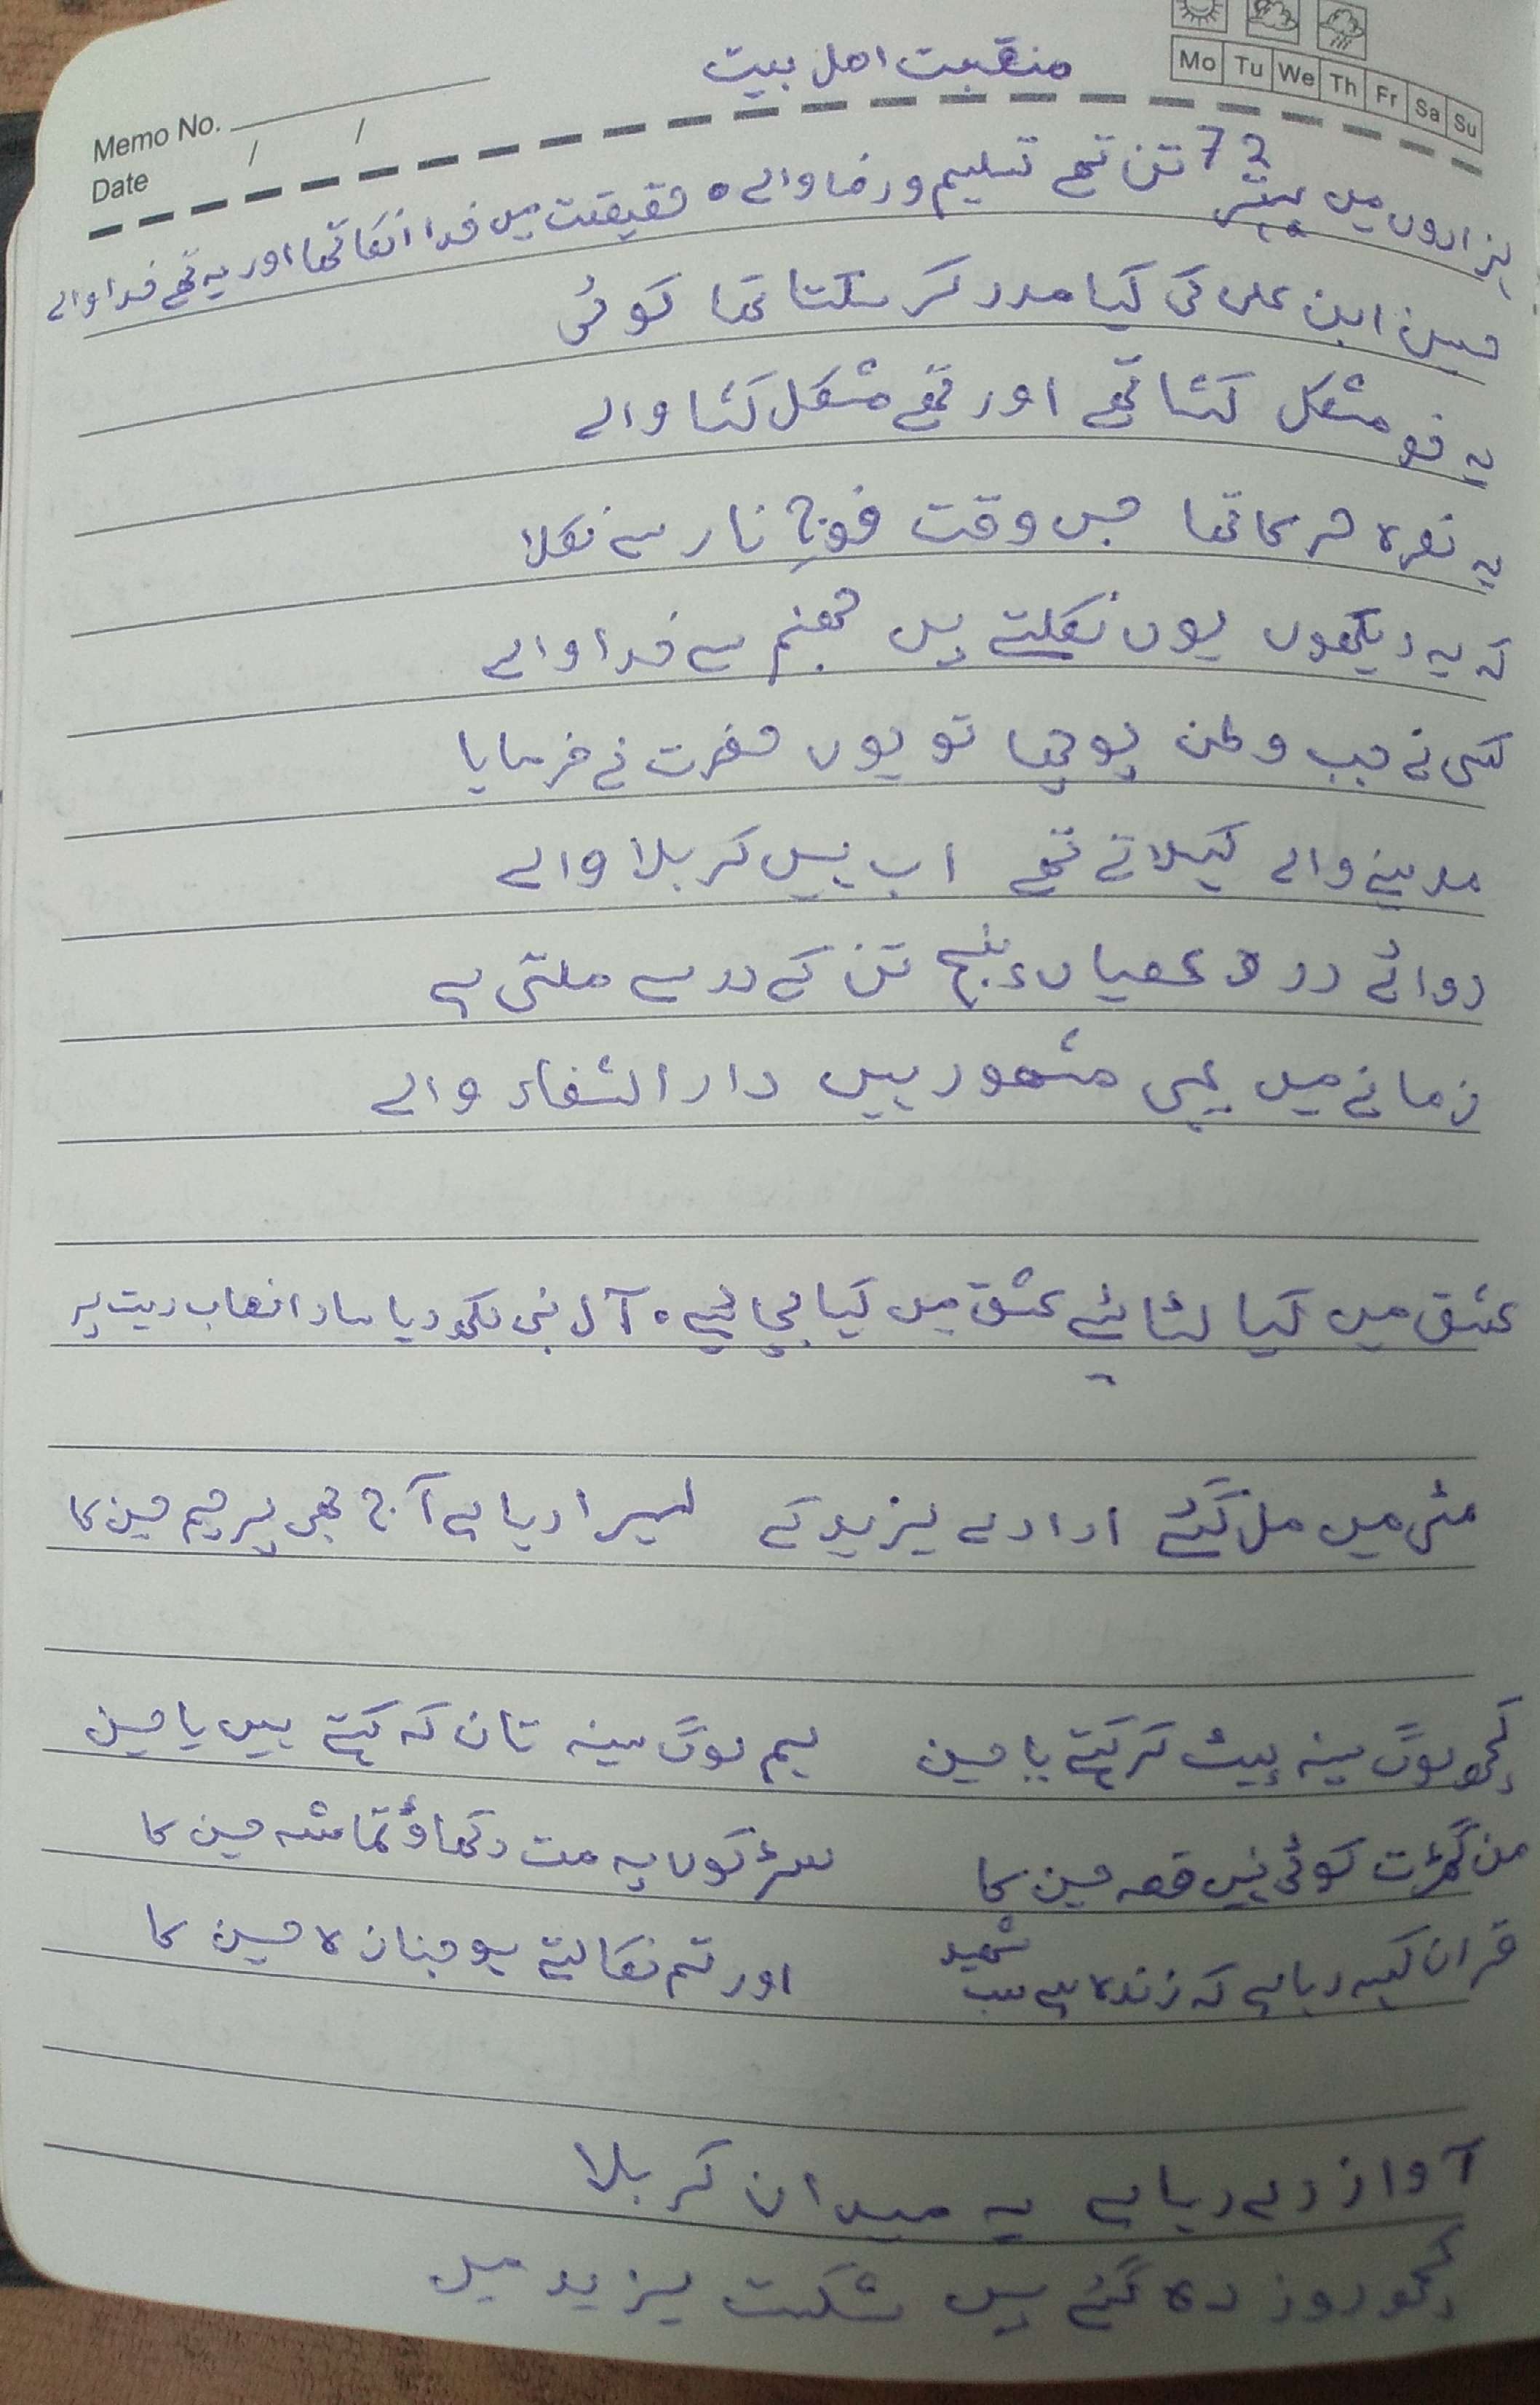 Mo Tu We Th Fr Sa Su
منقبت اہل بیت
Memo No.
Date / /
ہزاروں میں بہتر 72 تن تھے تسلیم و رضا والے ٥ حقیقت میں خدا انکا تھا اور یہ تھے خدا والے
حسین ابن علی کی کیا مدد کر سکتا تھا کوئی
یہ خو مشکل کشا تھے اور تھے مشکل کشا والے
یہ نعرہ حر کا تھا جس وقت فوجِ نار سے نکلا
کہ یہ دیکھوں یوں نکلتے ہیں جھنم سے خدا والے
کسی نے جب وطن پوچھا تو یوں حضرت نے فرمایا
مدینے والے کہلاتے تھے اب ہیں کربلا والے
دوائے درد عصیاں پنج تن کے در سے ملتی ہے
زمانے میں یہی مشھور ہیں دار الشفاء والے
عشق میں کیا لٹائیے عشق میں کیا بچائیے ٥ آل نبی لکھ دیا سارا نصاب ریت پر
مٹی میں مل گئے ارادے یزید کے لہرا رہا ہے آج بھی پرچم حسین کا
کچھ لوگ سینہ پیٹ کر کہتے یا حسین ہم لوگ سینہ تان کہ کہتے ہیں یا حسین
من گھڑت کوئی نہیں قصہ حسین کا سڑکوں پہ مت دکھاؤ تماشہ حسین کا
قران کہہ رہا ہے کہ زندہ ہے سب شھید اور تم نکالتے ہو جنازہ حسین کا
آواز دے رہا ہے یہ میدان کربلا
کچھ روز رہ گئے ہیں شکست یزید میں